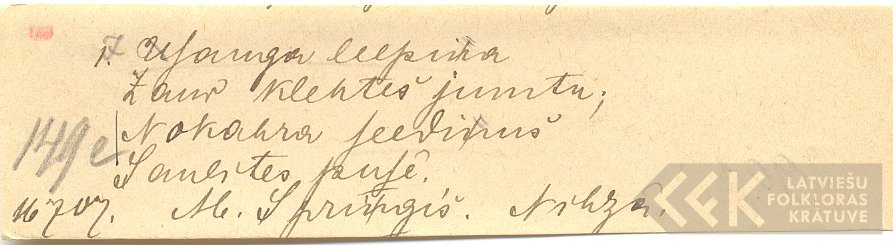 1. Usauga leepina
Zaur klehtes jumtu;
Nokahra seedinus
Saulites pusê.
149e
16707. M. Sprinģis. Nihzā.
LATVIEŠU
FOLKLORAS
KRĀTUVE